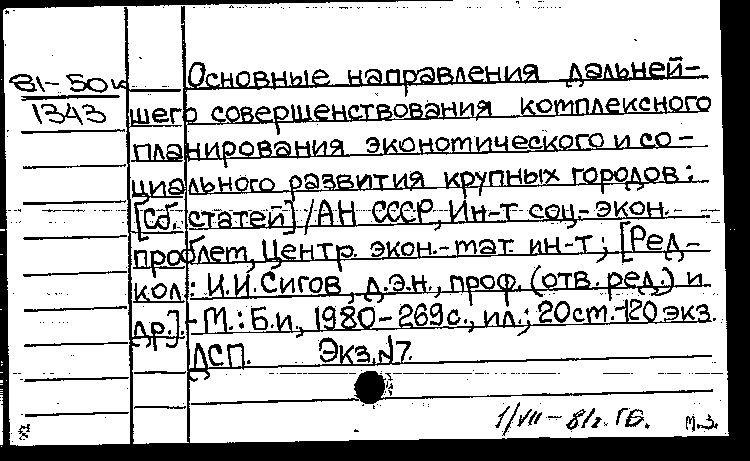 81-50к
1343
Основные направления дальней-
шего совершенствования комплексного
планирования экономического и со-
циального развития крупных городов:
[Сб. статей] / АН СССР, Ин-т соц.-экон.
проблем, Центр. экон.-мат. ин-т; [Ред-
кол.: И.И.Сигов, д.э.н., проф. (отв. ред.) и
др.]. - М.: Б.и, 1980 - 269с., ил.; 20см. - 120 экз.
ДСП. Экз.№7.
1/VII - 81г. ГБ. М.З.